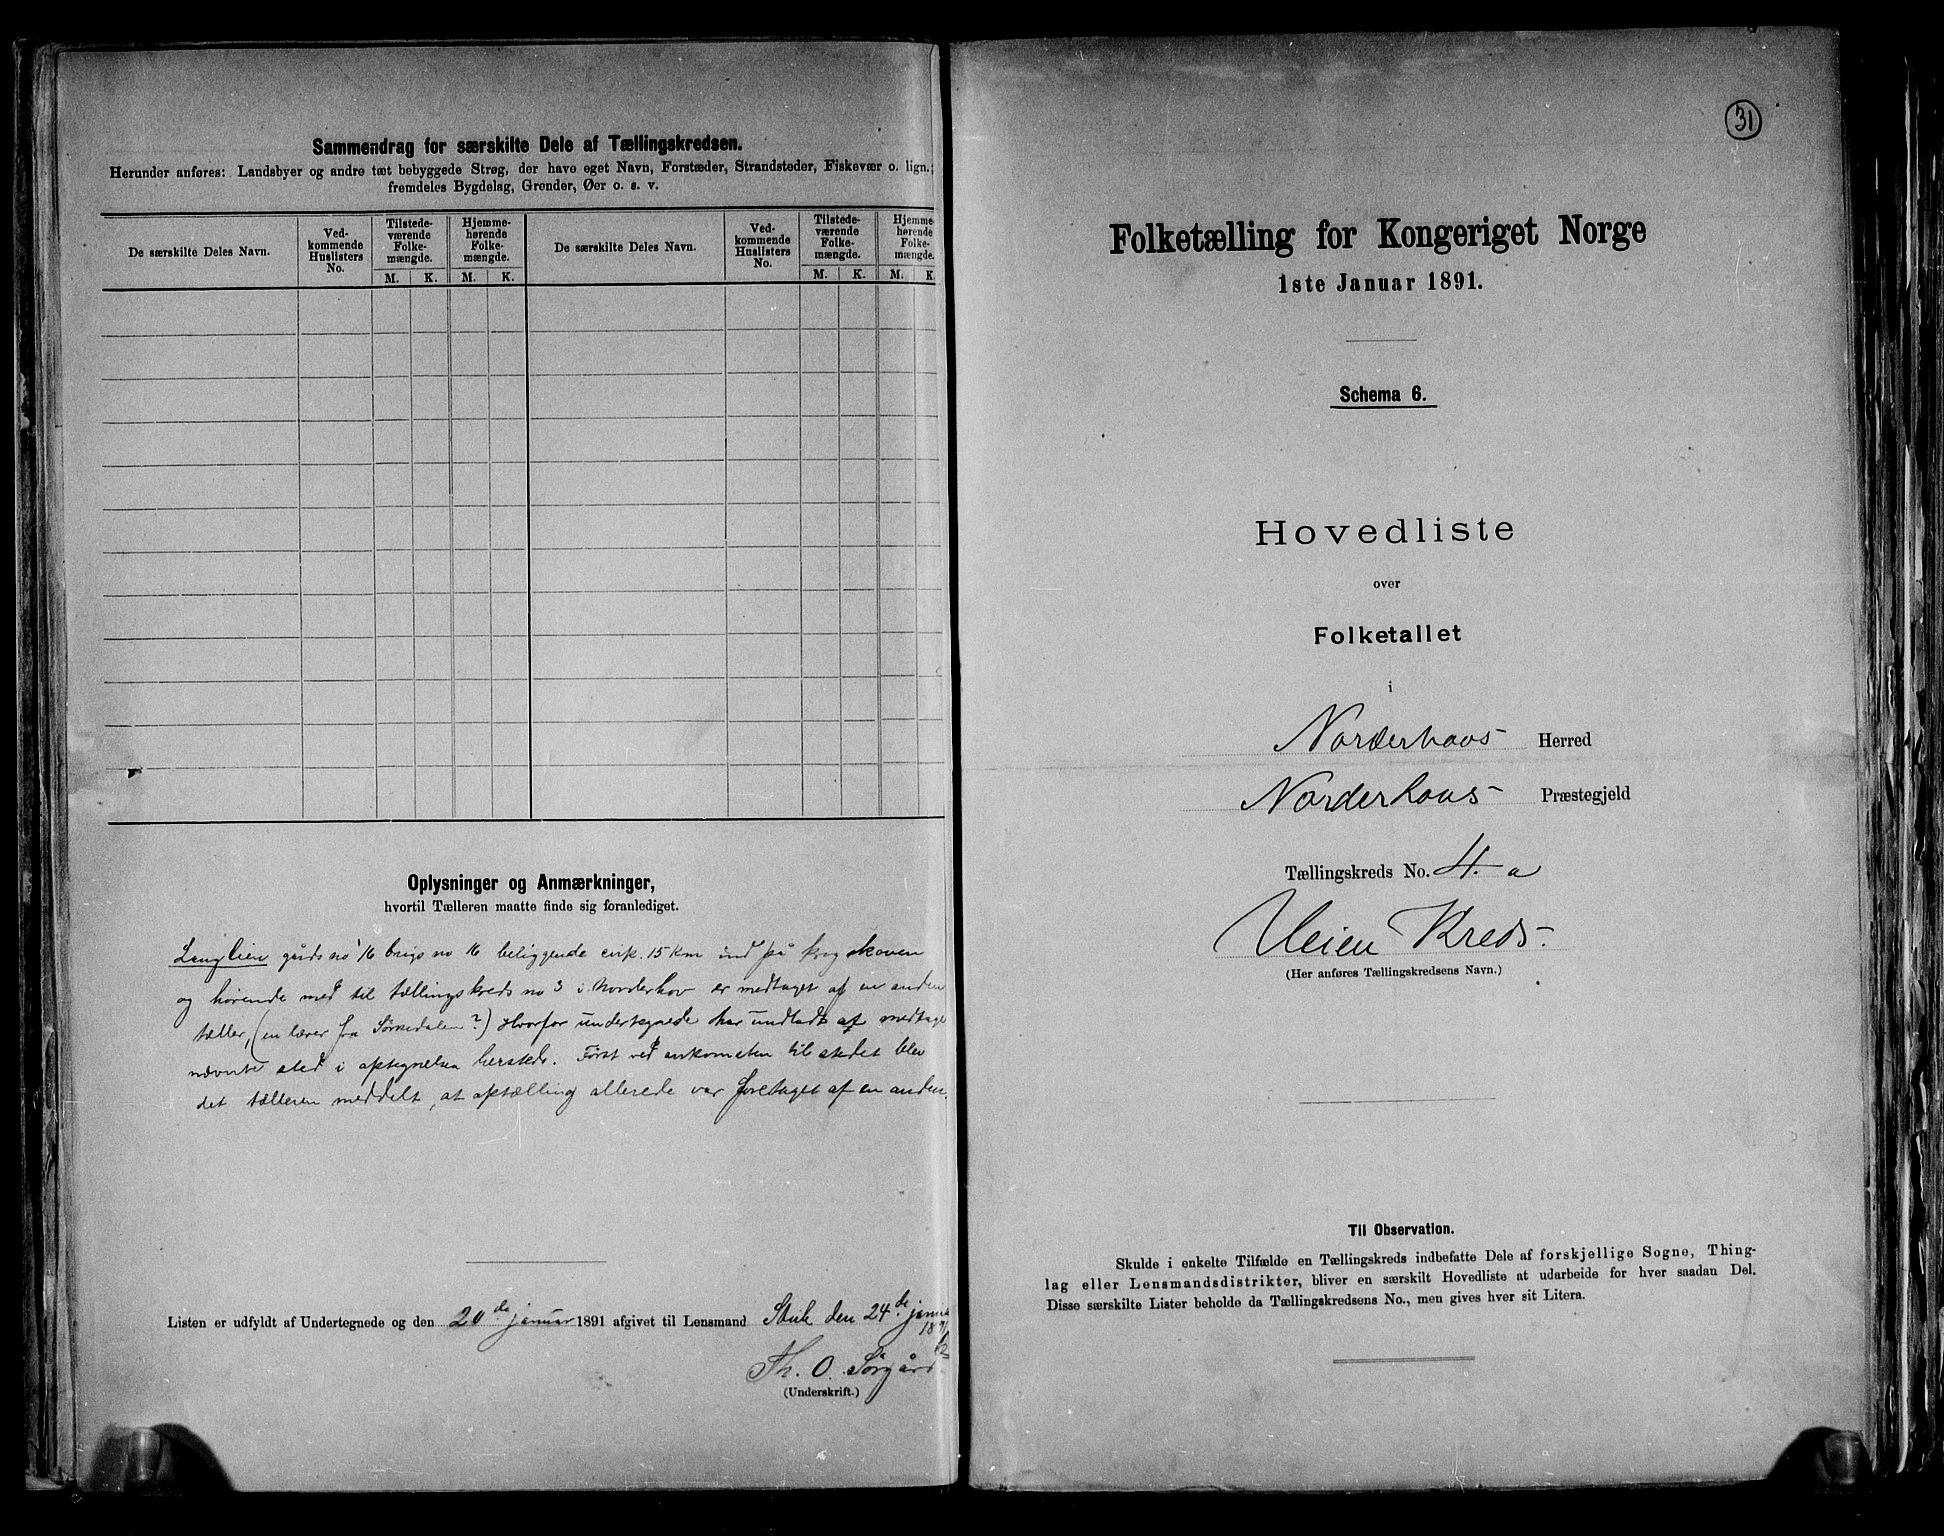 Sammendrag for særskilte Dele af Tællingskredsen.
Herunder anføres: Landsbyer og andre tæt bebyggede Strøg, der have eget Navn, Forstæder, Strandsteder, Fiskevær o. lign.;
fremdeles Bygdelag, Grender, Øer o. s. v.
De særskilte Deles Navn.
Ved-
kommende
Huslisters
No.
Tilstede-
værende
Folke-
mængde.
M. K.
Hjemme-
hørende
Folke-
mængde.
M. K.
De særskilte Deles Navn.
Ved-
kommende
Huslisters
No.
Tilstede-
værende
Folke-
mængde.
M. K.
Hjemme-
hørende
Folke-
mængde.
M. K
Oplysninger og Anmærkninger,
hvortil Tælleren maatte finde sig foranlediget.
Langlien gårds no 16 brugs no 16 beliggende cirk. 15 Km ind på Krogskoven
og hørende med til tællingskreds no 3 i Norderhov er medtaget af en anden
tæller, (en lærer fra Sørkedalen?) Hvorfor undertegnede har undladt at medtage
nævnte sted i optegnelsen. Først ved ankomsten til stedet blev
det tælleren meddelt, at optælling allerede var foretaget af en anden.
Listen er udfyldt af Undertegnede og den 20de januar 1891 afgivet til Lensmand den 24de janua
1891
Th. O. Sørgård
(Underskrift.)
31
Folketælling for Kongeriget Norge
1ste Januar 1891.
Schema 6.
Hovedliste
over
Folketallet
i
Norderhovs Herred
Norderhovs Præstegjeld
Tællingskreds No. 4. a
Veien Kreds.
(Her anføres Tællingskredsens Navn.)
Til Observation.
Skulde i enkelte Tilfælde en Tællingskreds indbefatte Dele af forskjellige Sogne, Thing-
lag eller Lensmandsdistrikter, bliver en særskilt Hovedliste at udarbeide for hver saadan Del.
Disse særskilte Lister beholde da Tællingskredsens No., men gives hver sit Litera.